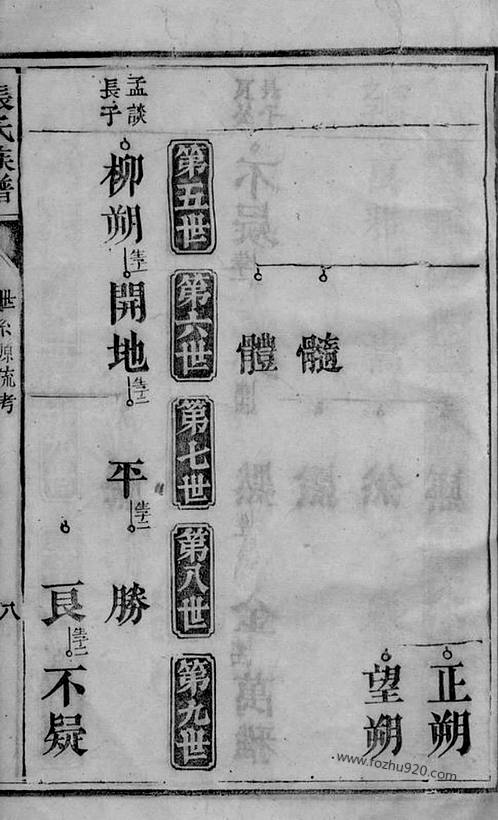 正朔
望朔
髓
體
第五世
第六世
第七世
第八世
第九世
孟談
長子
柳朔
生子一
開地
生子二
平
生子二
勝
良
生子二
不疑
張氏族譜
世系源流考
八
www.fozhu920.com